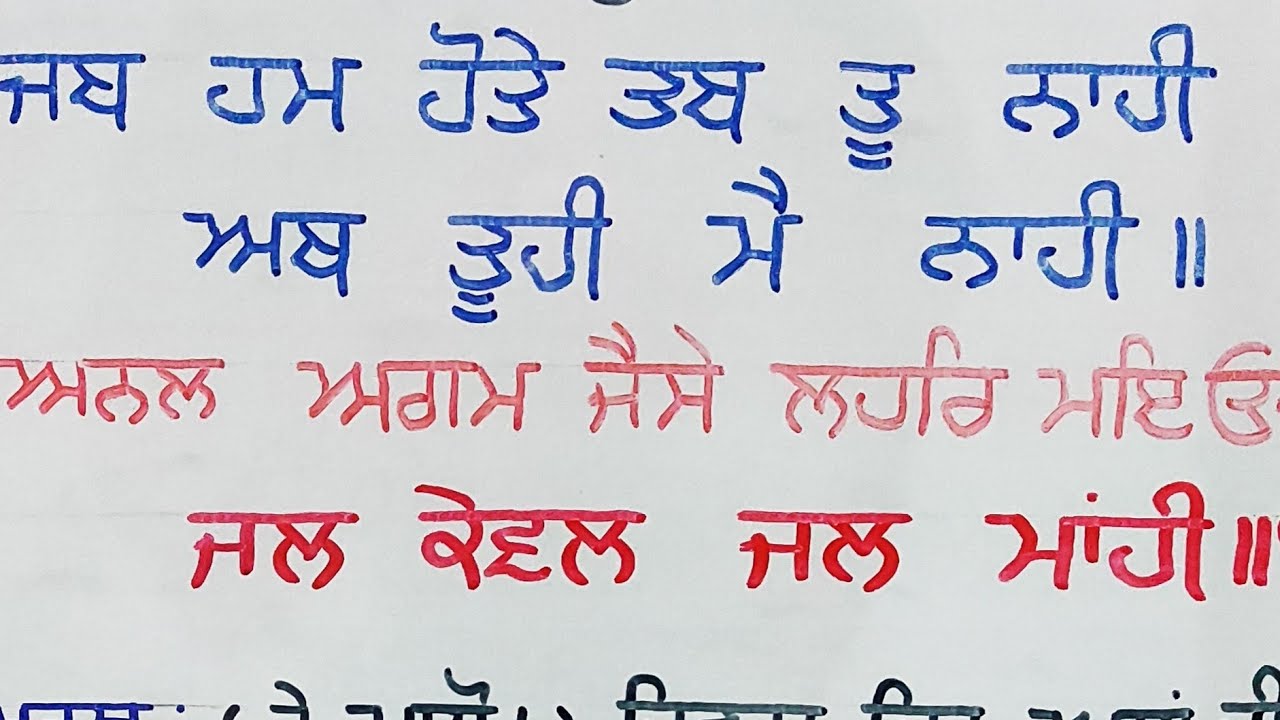 ਜਬ ਹਮ ਹੋਤੇ ਤਬ ਤੂ ਨਾਹੀ
ਅਬ ਤੂਹੀ ਮੈ ਨਾਹੀ॥
ਅਨਲ ਅਗਮ ਜੈਸੇ ਲਹਰਿ ਮਇਓ
ਜਲ ਕੇਵਲ ਜਲ ਮਾਂਹੀ॥